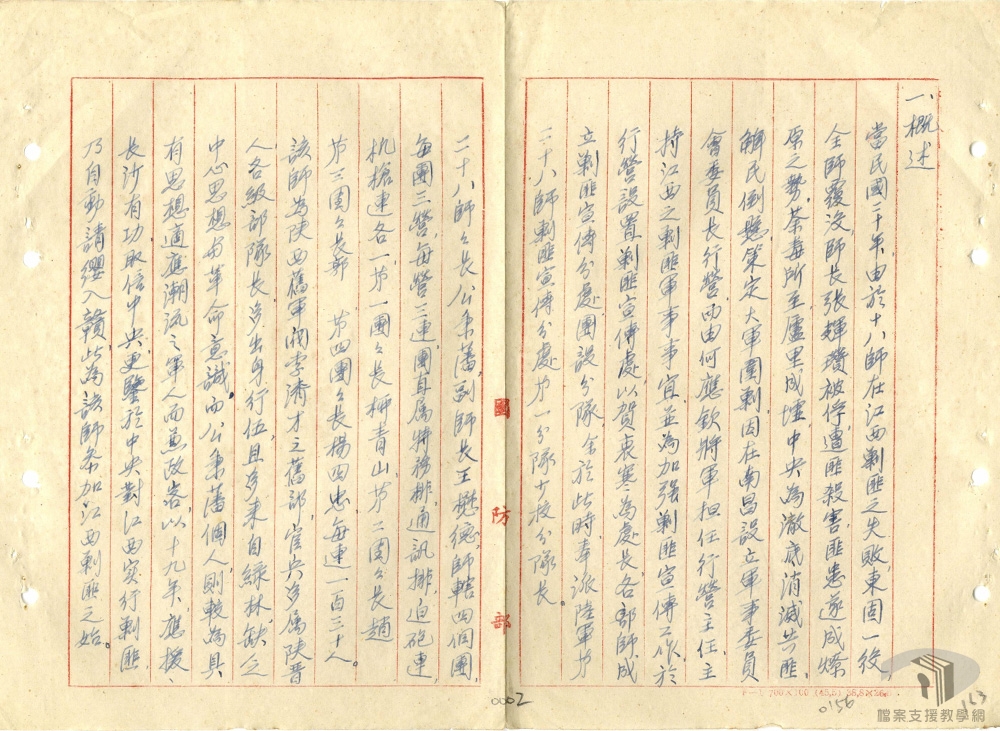 一、概述
當民國二十年,由於十八師在江西剿匪之失敗,東固一役
全師覆沒,師長張輝瓚被俘遭匪殺害,匪患遂成燎
原之勢,荼毒所至,廬里成墟,中央為澈底消滅共匪,
解民倒懸,策定大軍圍剿,因在南昌設立軍事委員
會委員長行營,而由何應欽將軍担任行營主任,主
持江西之剿匪軍事事宜,並為加强剿匪宣傳工作,於
行營設置剿匪宣傳處,以賀衷寒為處長,各部師成
立剿匪宣傳分處,團設分隊,余於此時奉派陸軍第
二十八師剿匪宣傳分處第一分隊少校分隊長。
二十八師々長公秉藩,副師長王懋德,師轄四個團,
每團三營,每營三連,團直屬特務排,通訊排,迫砲連,
机槍連各一,第一團々長柳青山,第二團々長趙
第三團々長鄭 第四團々長楊四忠,每連一百三十人。
該師為陕西舊軍閥李濟才之舊部,官兵多屬陕晋
人,各級部隊長多出身行伍,且多來自綠林,缺乏
中心思想與革命意識。而公秉藩個人,則較為具
有思想適應潮流之軍人,而兼政客,以十九年,應援
長沙有功,取信中央,更鑒於中央對江西實行剿匪,
乃自動請纓入贛,此為該師參加江西剿匪之始。
國防部
0002
0156
163
檔案支援教學網